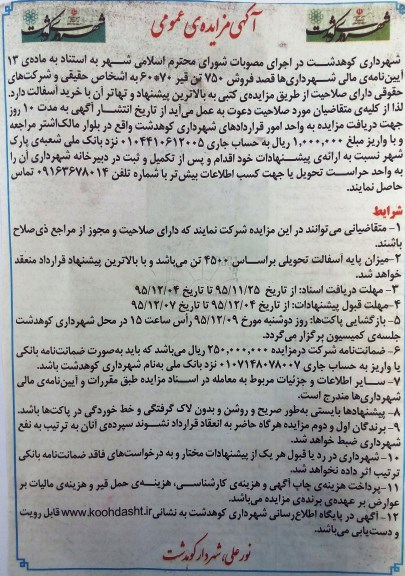 آگهی مزایده‌ی عمومی
شهرداری کوهدشت در اجرای مصوبات شورای محترم اسلامی شهر به استناد به ماده‌ی ۱۳
آیین‌نامه‌ی مالی شهرداری‌ها قصد فروش ۷۵۰ تن قیر ۶۰۷۰ به اشخاص حقیقی و شرکت‌های
حقوقی دارای صلاحیت از طریق مزایده‌ی کتبی به بالاترین پیشنهاد و تهاتر آن با خرید آسفالت دارد.
لذا از کلیه‌ی متقاضیان مورد صلاحیت دعوت به عمل می‌آید از تاریخ انتشار آگهی به مدت ۱۰ روز
جهت دریافت مزایده به واحد امور قراردادهای شهرداری کوهدشت واقع در بلوار مالک‌اشتر مراجعه
و با واریز مبلغ ۱,۰۰۰,۰۰۰ ریال به حساب جاری ۰۱۰۴۴۱۰۶۱۲۰۰۵ نزد بانک ملی شعبه‌ی پارک
شهر نسبت به ارائه‌ی پیشنهادات خود اقدام و پس از تکمیل و ثبت در دبیرخانه شهرداری آن را
به واحد حراست تحویل یا جهت کسب اطلاعات بیش‌تر با شماره تلفن ۰۹۱۶۳۶۷۸۰۱۴ تماس
حاصل نمایند.
شرایط
۱- متقاضیانی می‌توانند در این مزایده شرکت نمایند که دارای صلاحیت و مجوز از مراجع ذی‌صلاح
باشند.
۲-میزان پایه آسفالت تحویلی براساس ۴۵۰۰ تن می‌باشد و با بالاترین پیشنهاد قرارداد منعقد
خواهد شد.
۳- مهلت دریافت اسناد: از تاریخ ۹۵/۱۱/۲۵ تا تاریخ ۹۵/۱۲/۰۴
۴-مهلت قبول پیشنهادات: از تاریخ ۹۵/۱۲/۰۴ تا تاریخ ۹۵/۱۲/۰۷
۵- بازگشایی پاکت‌ها: روز دوشنبه مورخ ۹۵/۱۲/۰۹ رأس ساعت ۱۵ در محل شهرداری کوهدشت
جلسه‌ی کمیسیون برگزار می‌گردد.
۶- ضمانت‌نامه شرکت درمزایده ۲۵۰,۰۰۰,۰۰۰ ریال می‌باشد که باید به‌صورت ضمانت‌نامه بانکی
یا واریز به حساب جاری ۰۱۰۷۱۴۸۰۷۸۰۰۷ نزد بانک ملی به‌نام شهرداری کوهدشت باشد.
۷- سایر اطلاعات و جزئیات مربوط به معامله در اسناد مزایده طبق مقررات و آیین‌نامه‌ی مالی
شهرداری‌ها مندرج است.
۸- پیشنهادها بایستی به‌طور صریح و روشن و بدون لاک گرفتگی و خط خوردگی در پاکت‌ها باشد.
۹- برندگان اول و دوم مزایده هرگاه حاضر به انعقاد قرارداد نشوند سپرده‌ی آنان به ترتیب به نفع
شهرداری ضبط خواهد شد.
۱۰- شهرداری در رد یا قبول هر یک از پیشنهادات مختار و به درخواست‌های فاقد ضمانت‌نامه بانکی
ترتیب اثر داده نخواهد شد.
۱۱-پرداخت هزینه‌ی چاپ آگهی و هزینه‌ی کارشناسی، هزینه‌ی حمل قیر و هزینه‌ی مالیات بر
عوارض بر عهده‌ی برنده‌ی مزایده می‌باشد.
۱۲- آگهی در پایگاه اطلاع‌رسانی شهرداری کوهدشت به نشانی www.koohdasht.ir قابل رویت
و دست‌یابی می‌باشد.
نورعلی، شهردار کوهدشت